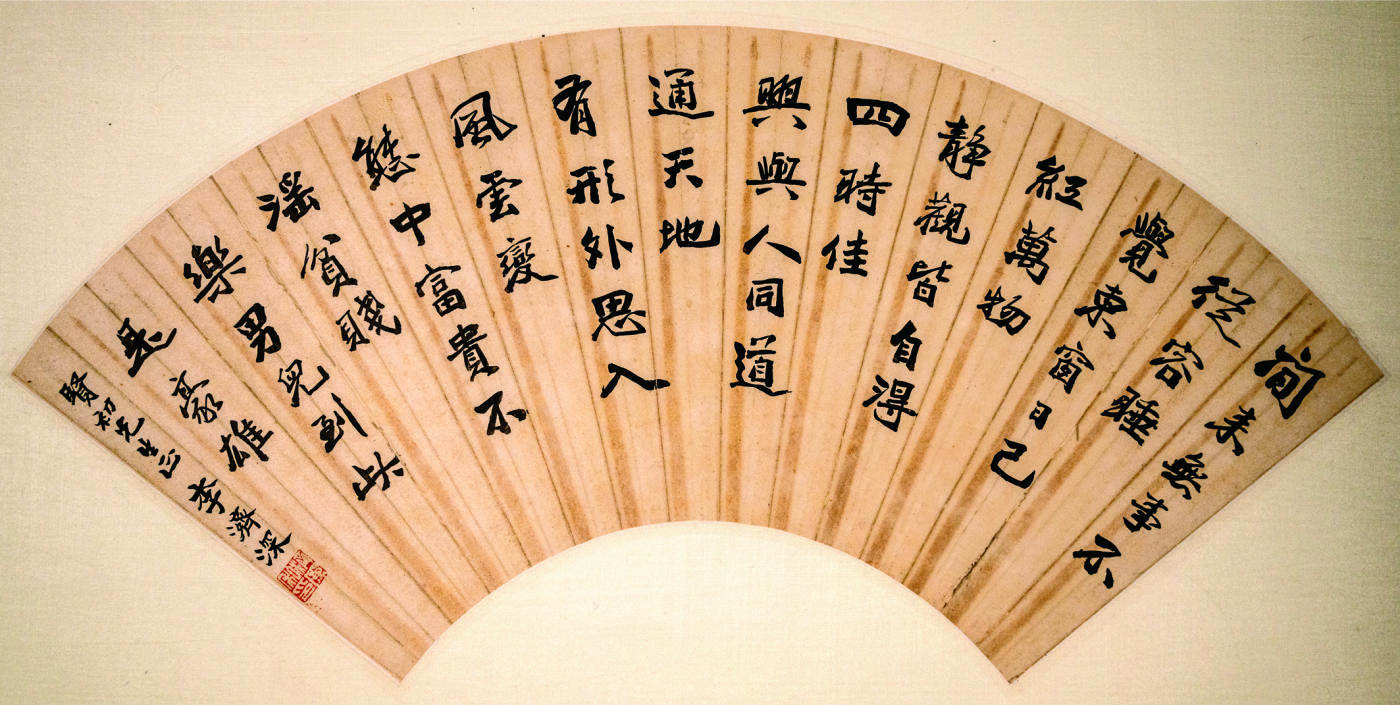 閒来無事不
從容睡
覺東窗日已
紅萬物
靜觀皆自得
四時佳
興與人同道
通天地
有形外思入
風雲變
態中富貴不
淫貧賤
樂男兒到此
是豪雄
賢初先生正 李濟深